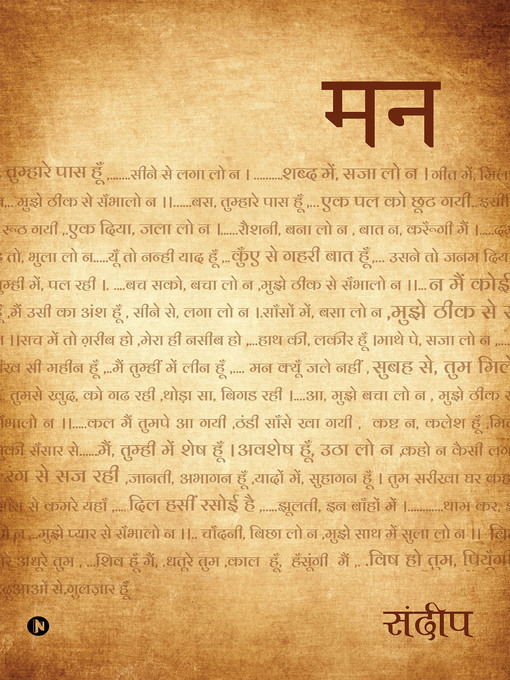 मन
तुम्हारे पास हूँ ,......सीने से लगा लो न । .........शब्द में, सजा लो न । गीत में, मिल
... मुझे ठीक से सँभालो न ।।......बस, तुम्हारे पास हूँ ,...एक पल को छूट गयी..
रूठ गयी ,.एक दिया, जला लो न ।.....रौशनी, बना लो न , बात न, करूँगी मैं ।....
तो, भुला लो न....यूँ तो नन्ही याद हूँ ,..कुँए से गहरी बात हूँ,... उसने तो जनम दिया
में, पल रही ।. ....बच सको, बचा लो न ,मुझे ठीक से सँभालो न ।।... न मैं कोई
हूँ ,मैं उसी का अंश हूँ , सीने से, लगा लो न ।.साँसों में, बसा लो न ,मुझे ठीक से
। ।सच में तो ग़रीब हो ,मेरा ही नसीब हो ,...हाथ की, लकीर हूँ ।माथे पे, सजा लो न ,....
सी महीन हूँ ,..मैं तुम्हीं में लीन हूँ ,.... मन क्यूँ जले नहीं , सुबह से, तुम मिले
तुमसे खुद, को गढ रही ,थोड़ा सा, बिगड रही ।....आ, मुझे बचा लो न , मुझे ठीक
लो न ।।.....कल मैं तुमपे आ गयी ,ठंडी साँसे खा गयी , कष्ट न, कलेश हूँ ,
सँसार से......मैं, तुम्ही में शेष हूँ ।अवशेष हूँ, उठा लो न ,कहो न कैसी
रंग से सज रही ,जानती, अभागन हूँ ,यादों में, सुहागन हूँ । तुम सरीखा घर
से कमरे यहाँ ,.....दिल हसीं रसोई है ,.....झूलती, इन बाँहों में ।............थाम कर,
न ,..मुझे प्यार से सँभालो न ।।.. चाँदनी, बिछा लो न ,मुझे साथ में सुला लो न ।।
अधूरे तुम , ...शिव हूँ मैं, ,धतूरे तुम ,काल हूँ, हँसूंगी मैं ,. .विष हो तुम, पियूंगी
से,गुलज़ार हूँ
N
संदीप